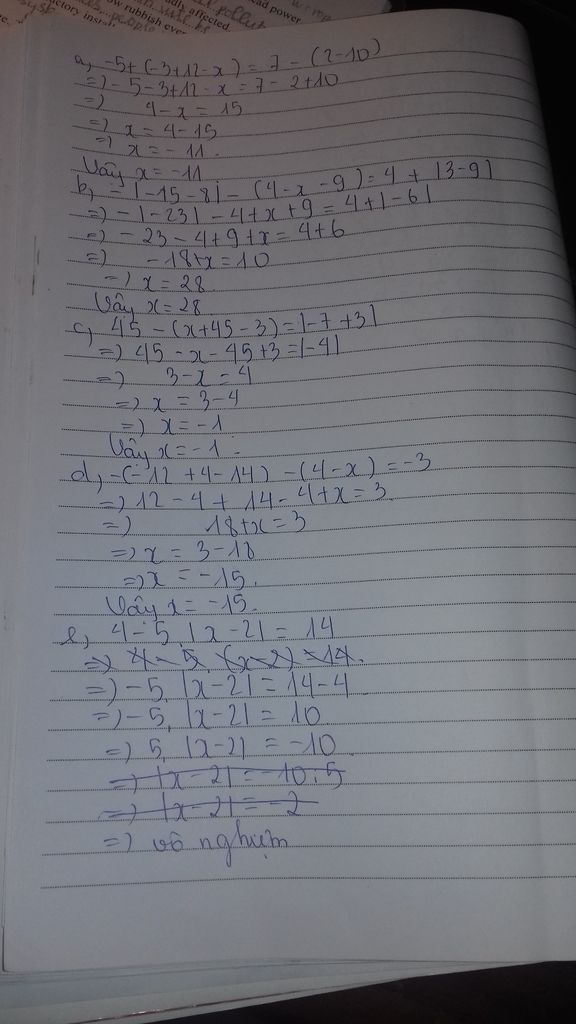 a, -5+(-3+12-x) = 7-(2-10)
=) -5-3+12-x = 7-2+10
=) 4-x = 15
=) x = 4-15
=) x = -11.
Vậy x = -11
b, -|-15-8| - (4-x-9) = 4 + |3-9|
=) -|-23| - 4+x+9 = 4+|-6|
=) -23-4+9+x = 4+6
=) -18+x = 10
=) x = 28.
Vậy x = 28.
c, 45 - (x+45-3) = |-7+3|
=) 45-x-45+3 = |-4|
=) 3-x = 4
=) x = 3-4
=) x = -1
Vậy x = -1.
d, -(-12+4-14) - (4-x) = -3
=) 12-4+14-4+x = 3
=) 18+x = 3
=) x = 3-18
=) x = -15.
Vậy x = -15.
e, 4-5.|x-2| = 14
=) 4-5 (x-2) = 14.
=) -5.|x-2| = 14-4
=) -5.|x-2| = 10
=) 5.|x-2| = -10
=) |x-2| = -10:5
=) |x-2| = -2
=) vô nghiệm